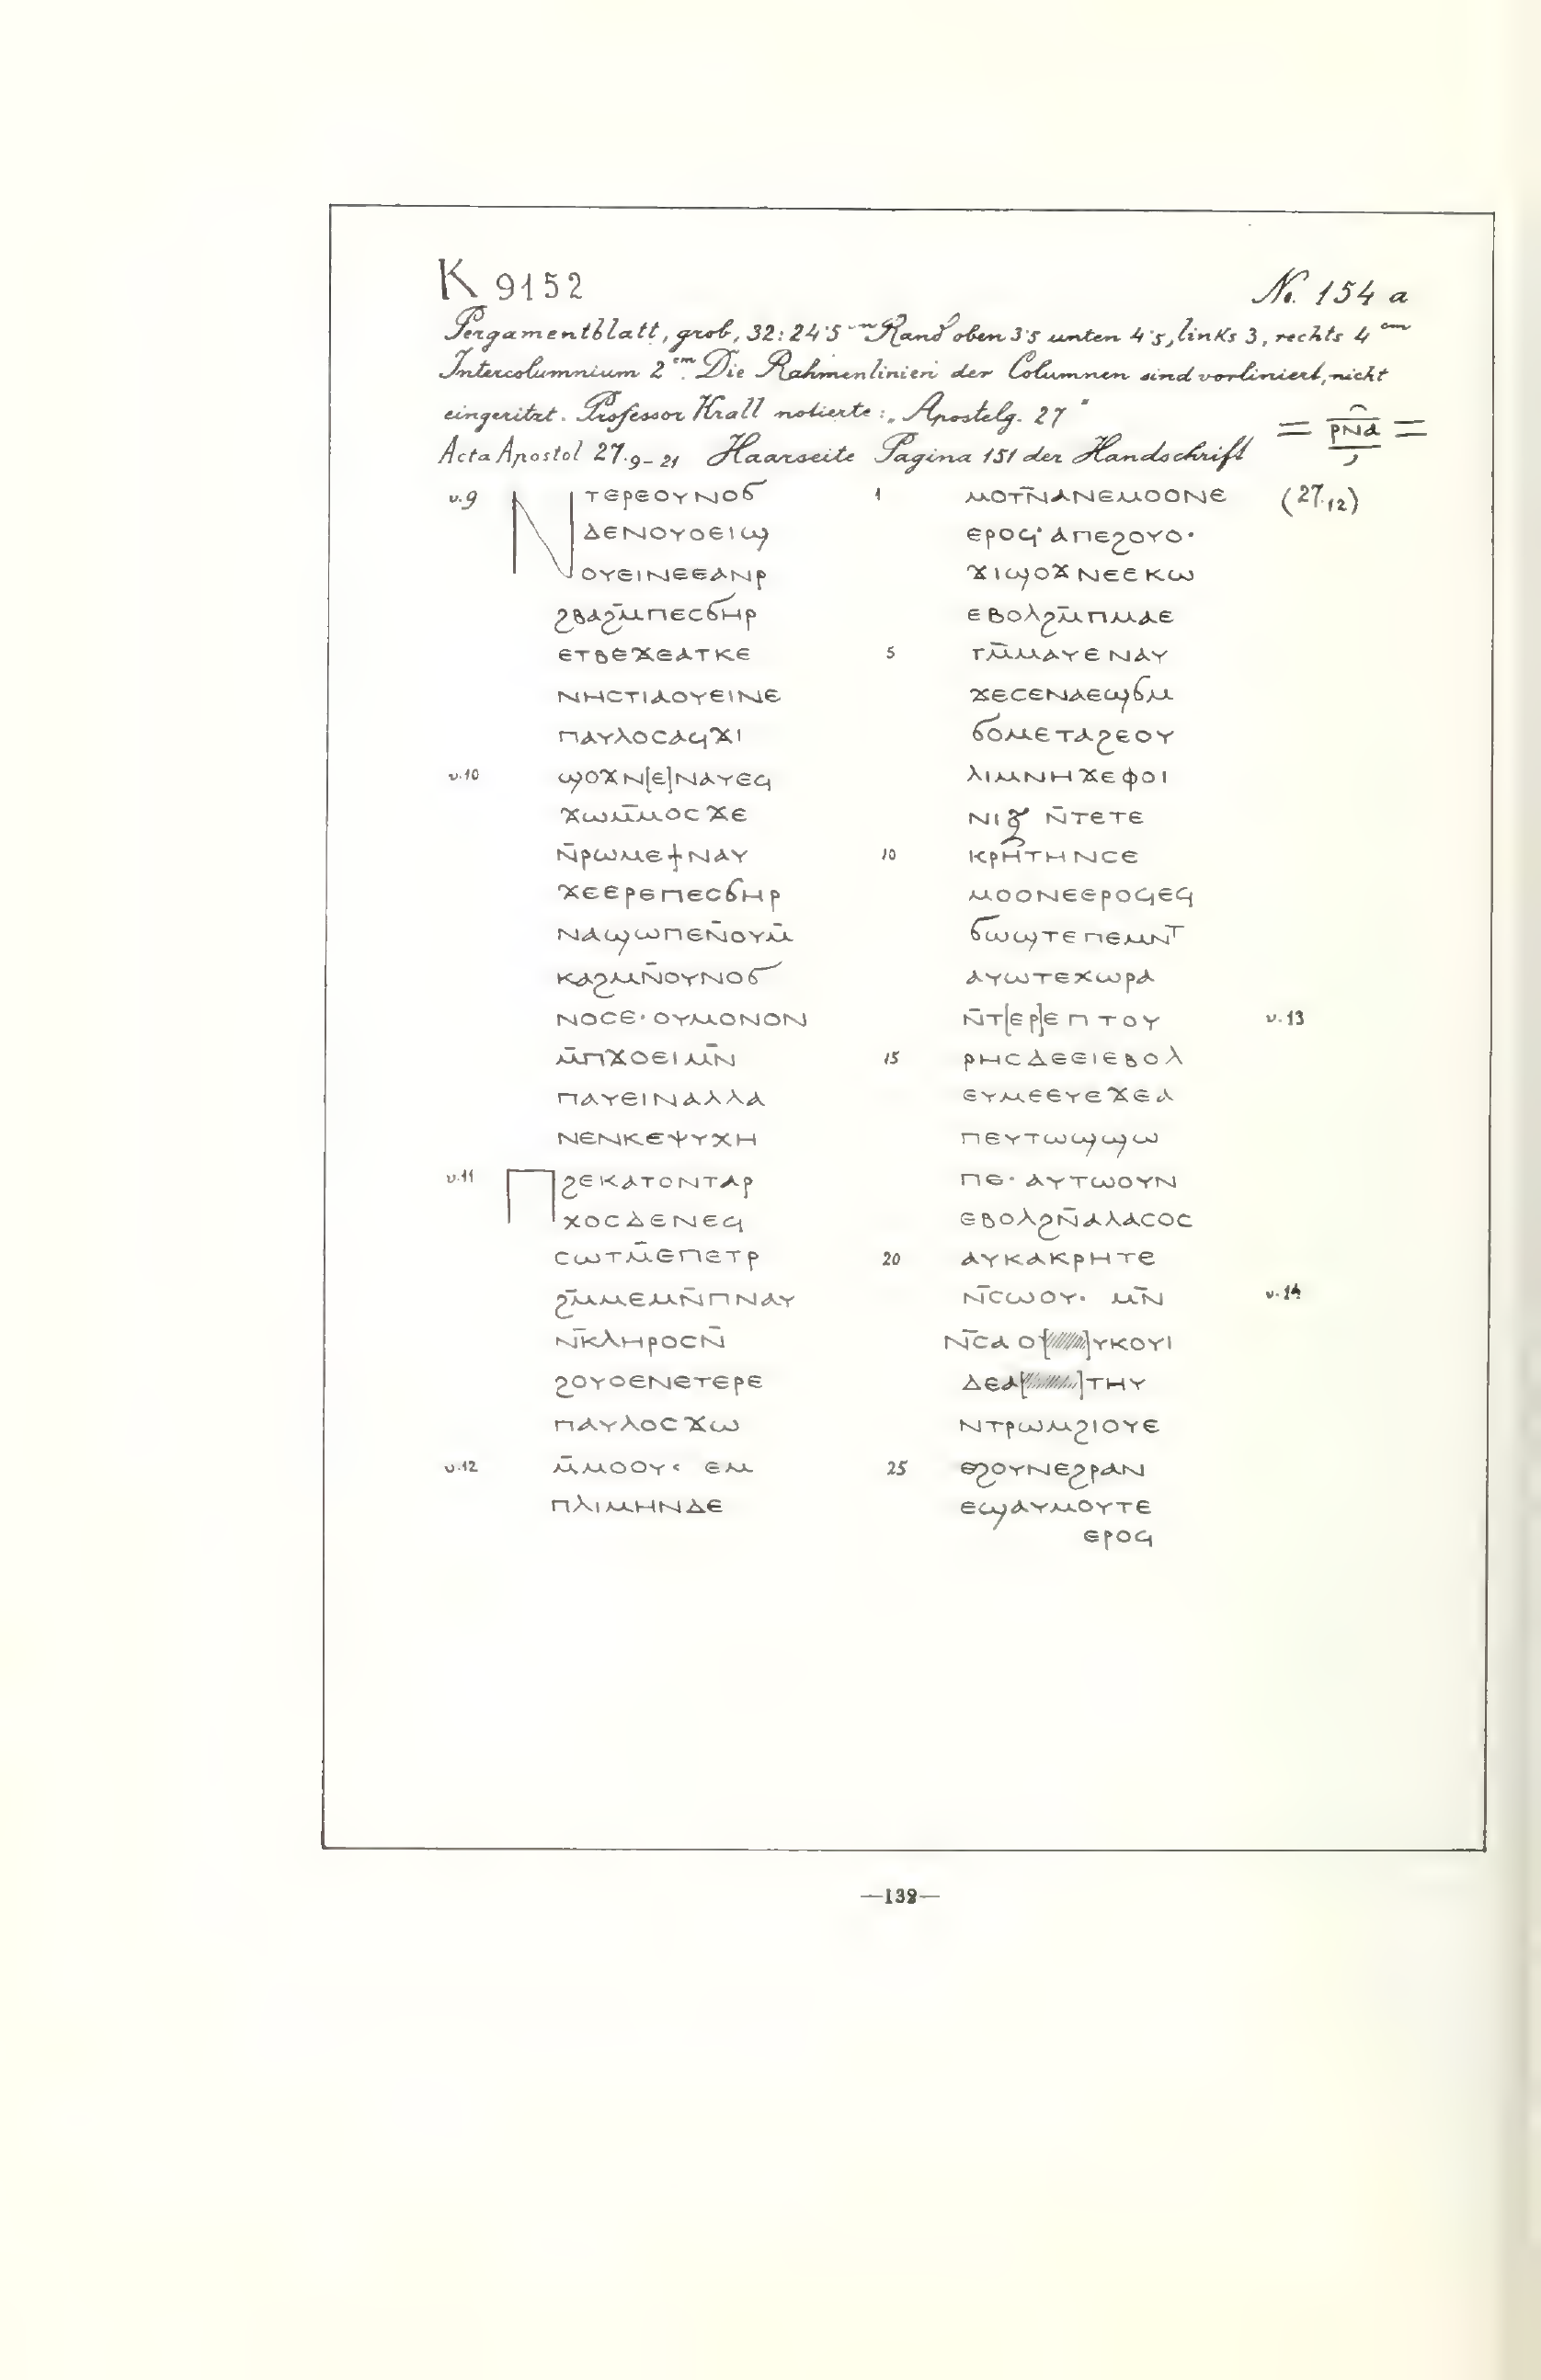 K 9152
No. 154 a
Pergamentblatt, grob, 32:24·5 cm Rand oben 3·5 unten 4·5, links 3, rechts 4 cm
Intercolumnium 2 cm. Die Rahmenlinien der Columnen sind vorliniert, nicht
eingeritzt. Professor Krall notierte: „Apostelg. 27"
= ⲣⲛⲁ =
Acta Apostol 27.9-21 Haarseite Pagina 151 der Handschrift
v.9 ⲛⲧⲉⲣⲉⲟⲩⲛⲟϭ
ⲇⲉⲛⲟⲩⲟⲉⲓϣ
ⲟⲩⲉⲓⲛⲉⲉⲁⲛⲣ
ϩⲃⲁϩⲙ̄ⲡⲉⲥϭⲏⲣ
ⲉⲧⲃⲉϫⲉⲁⲧⲕⲉ
ⲛⲏⲥⲧⲓⲁⲟⲩⲉⲓⲛⲉ
ⲡⲁⲩⲗⲟⲥⲁϥϫⲓ
v.10 ϣⲟϫⲛ[ⲉ]ⲛⲁⲩⲉϥ
ϫⲱⲙ̄ⲙⲟⲥϫⲉ
ⲛ̄ⲣⲱⲙⲉϯⲛⲁⲩ
ϫⲉⲉⲣⲉⲡⲉⲥϭⲏⲣ
ⲛⲁϣⲱⲡⲉⲛ̄ⲟⲩⲙ̄
ⲕⲁϩⲙⲛ̄ⲟⲩⲛⲟϭ
ⲛⲟⲥⲉ· ⲟⲩⲙⲟⲛⲟⲛ
ⲙ̄ⲡϫⲟⲉⲓⲙⲛ̄
ⲡⲁⲩⲉⲓⲛⲁⲗⲗⲁ
ⲛⲉⲛⲕⲉⲯⲩⲭⲏ
v.11 ⲡϩⲉⲕⲁⲧⲟⲛⲧⲁⲣ
ⲭⲟⲥⲇⲉⲛⲉϥ
ⲥⲱⲧⲙ̄ⲉⲡⲉⲧⲣ
ϩⲙ̄ⲙⲉⲙⲛ̄ⲡⲛⲁⲩ
ⲛ̄ⲕⲗⲏⲣⲟⲥⲛ̄
ϩⲟⲩⲟⲉⲛⲉⲧⲉⲣⲉ
ⲡⲁⲩⲗⲟⲥϫⲱ
v.12 ⲙ̄ⲙⲟⲟⲩ· ⲉⲙ
ⲡⲗⲓⲙⲏⲛⲇⲉ
1 ⲙⲟⲧⲛ̄ⲁⲛⲉⲙⲟⲟⲛⲉ (27.12)
ⲉⲣⲟϥ· ⲁⲡⲉϩⲟⲩⲟ·
ϫⲓϣⲟϫⲛⲉⲉⲕⲱ
ⲉⲃⲟⲗϩⲙ̄ⲡⲙⲁⲉ
5 ⲧⲙ̄ⲙⲁⲩⲉⲛⲁⲩ
ϫⲉⲥⲉⲛⲁⲉϣϭⲙ
ϭⲟⲙⲉⲧⲁϩⲉⲟⲩ
ⲗⲓⲙⲛⲏϫⲉⲫⲟⲓ
ⲛⲓⲝ ⲛ̄ⲧⲉⲧⲉ
10 ⲕⲣⲏⲧⲏⲛⲥⲉ
ⲙⲟⲟⲛⲉⲉⲣⲟϥⲉϥ
ϭⲱϣⲧⲉⲡⲉⲙⲛ̄ⲧ
ⲁⲩⲱⲧⲉⲭⲱⲣⲁ
ⲛ̄ⲧ[ⲉⲣ]ⲉⲡⲧⲟⲩ v.13
15 ⲣⲏⲥⲇⲉⲉⲓⲉⲃⲟⲗ
ⲉⲩⲙⲉⲉⲩⲉϫⲉⲁ
ⲡⲉⲩⲧⲱϣϣⲱ
ⲡⲉ· ⲁⲩⲧⲱⲟⲩⲛ
ⲉⲃⲟⲗϩⲛ̄ⲁⲗⲁⲥⲟⲥ
20 ⲁⲩⲕⲁⲕⲣⲏⲧⲉ
ⲛ̄ⲥⲱⲟⲩ· ⲙⲛ̄ v.14
ⲛ̄ⲥⲁⲟⲩ[ ]ⲩⲕⲟⲩⲓ
ⲇⲉⲁ[ ]ⲧⲏⲩ
ⲛⲧⲣⲱⲙϩⲓⲟⲩⲉ
25 ⲉϩⲟⲩⲛⲉϩⲣⲁⲛ
ⲉϣⲁⲩⲙⲟⲩⲧⲉ
ⲉⲣⲟϥ